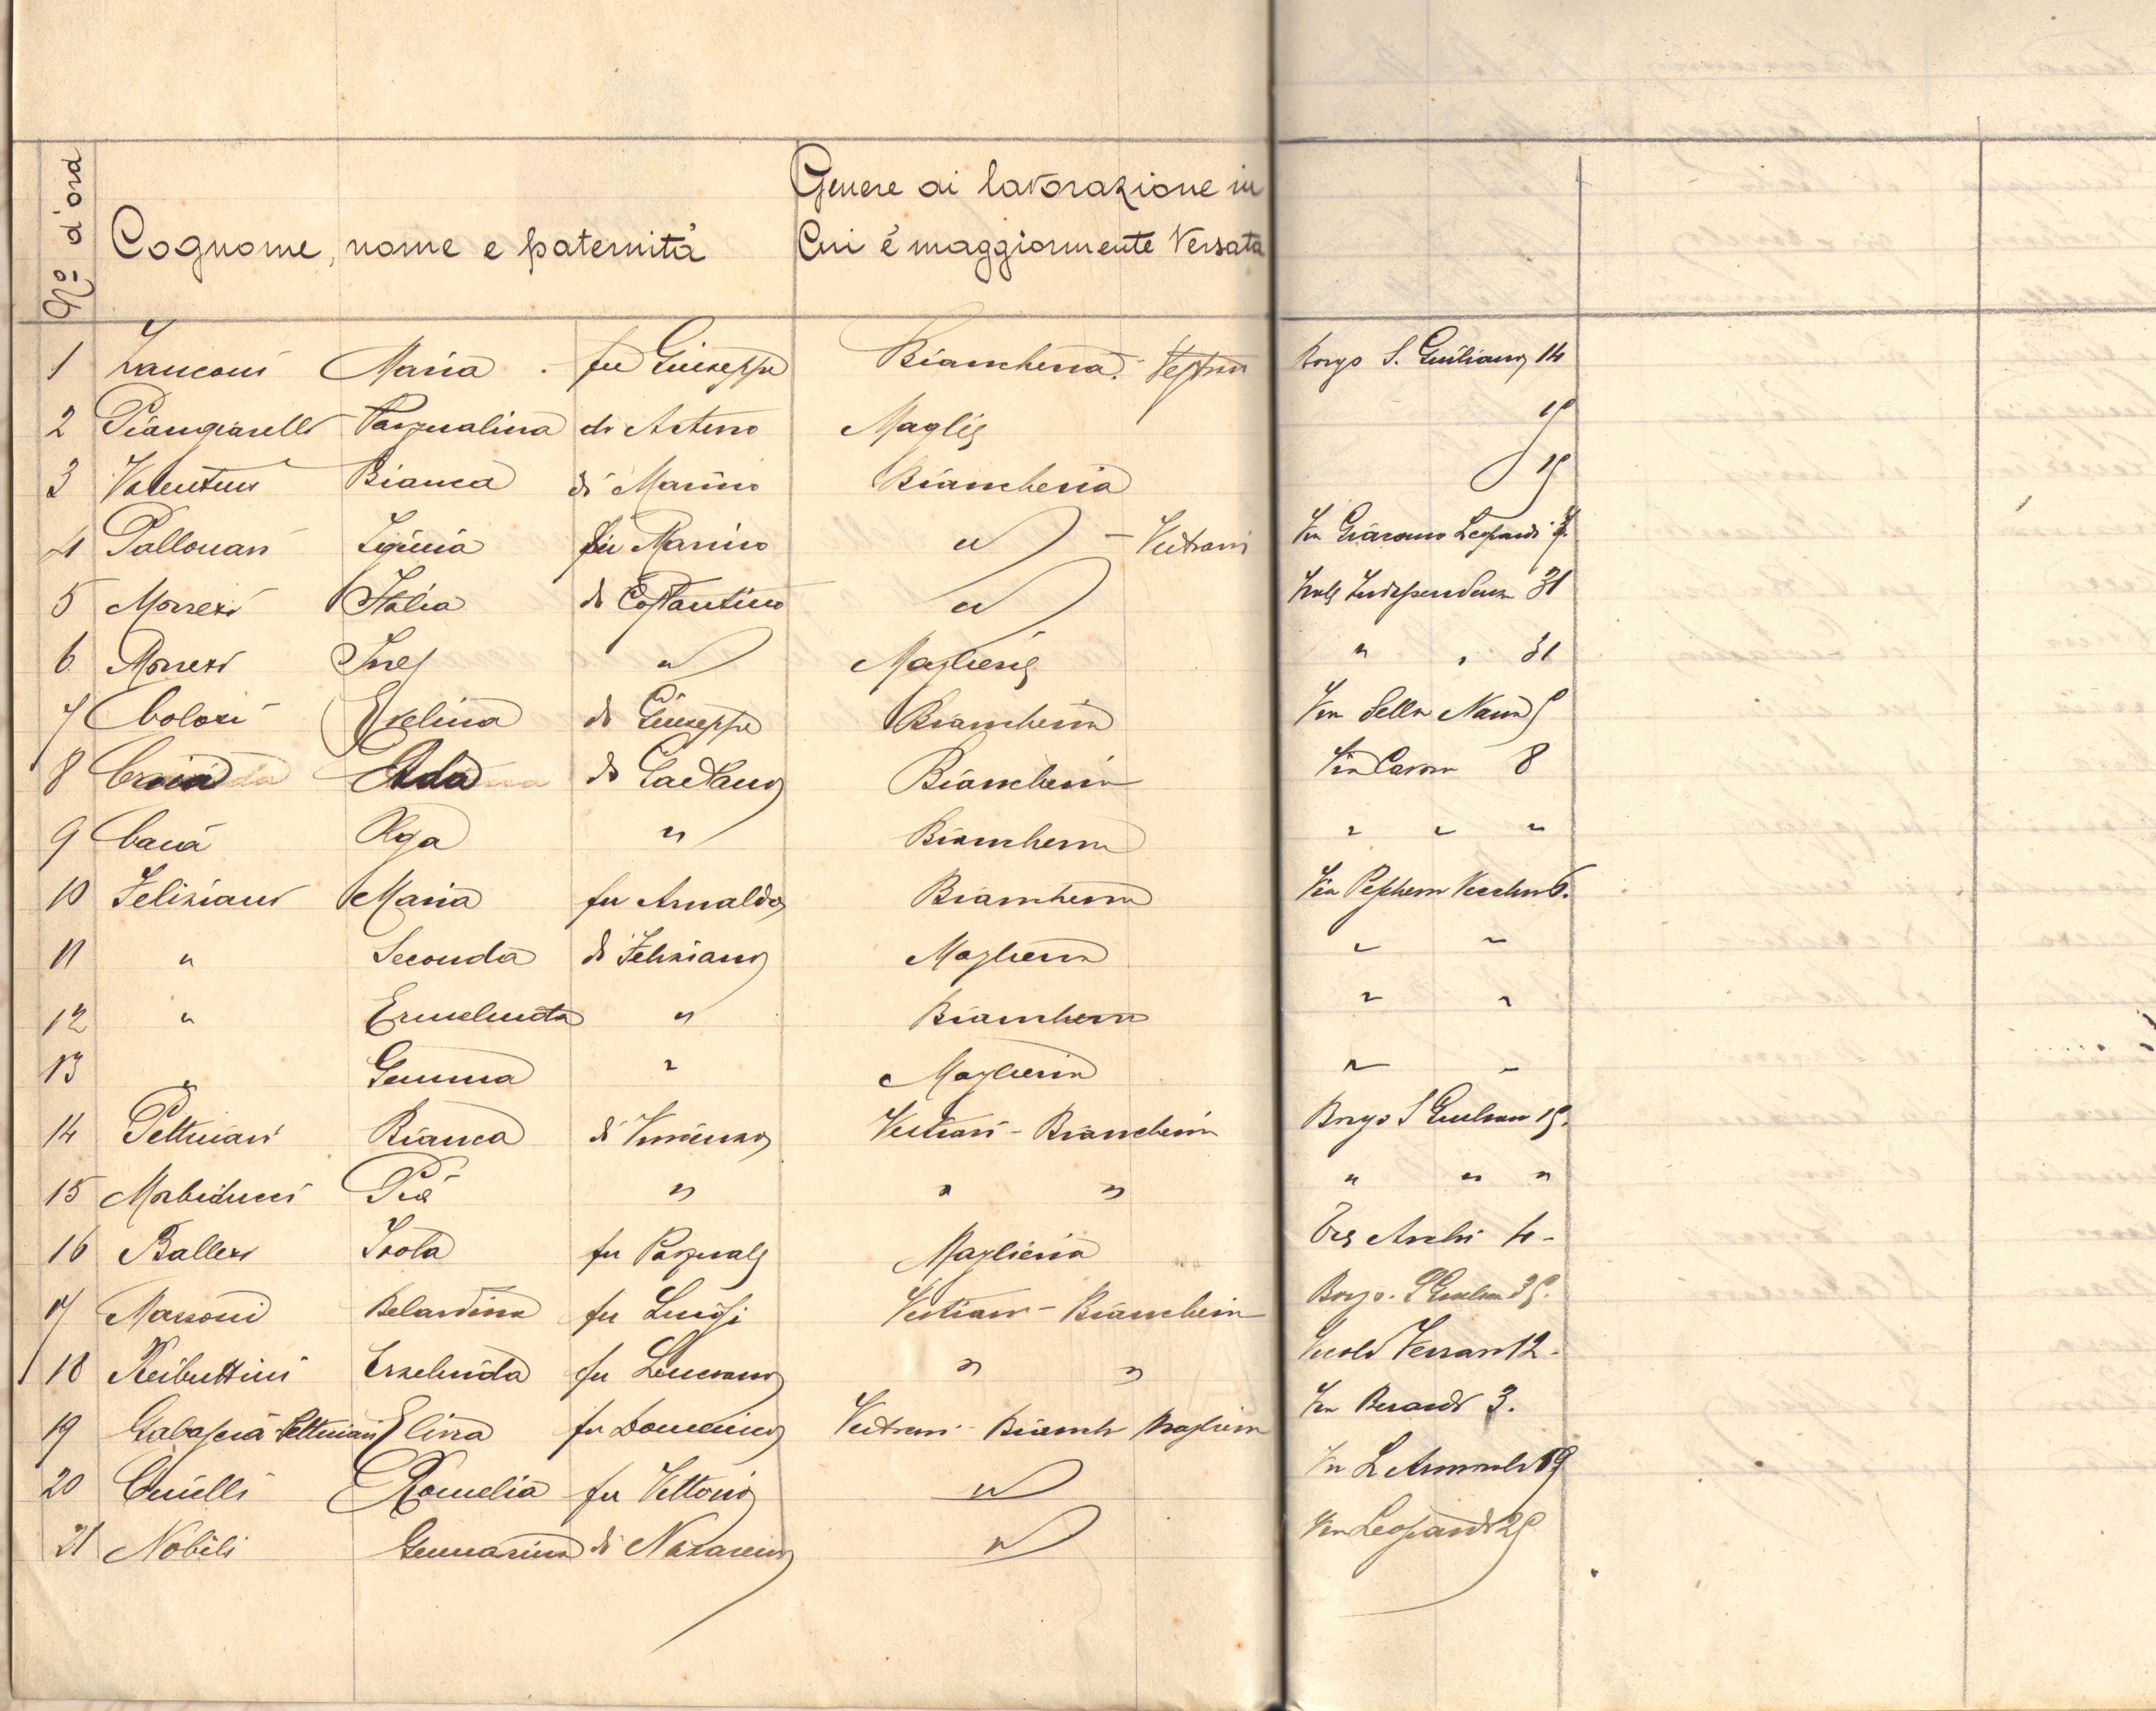 Nº d'ord
Cognome, nome e paternità
Genere di lavorazione in
Cui é maggiormente Versata
1 Zanconi Maria fu Giuseppe Biancheria Borgo S. Giuliano 14
2 Piangiarelli Pasqualina di Arturo Maglie 15
3 Valentini Bianca di Marino Biancheria 15
4 Pallonari Iginia fu Marino " - Vestiari Via Giacomo Leopardi
5 Morresi Italia di Costantino " Viale Indipendenza 31
6 Morresi Ines " Maglierie " " 31
7 Colosi Evelina di Giuseppe Biancheria Via della Nana 5
8 Ada di Gaetano Biancheria Via Cavour 8
9 Caià Olga " Biancheria " " "
10 Feliziani Maria fu Arnaldo Biancheria Via Pescheria Vecchia 6.
11 " Seconda di Feliziano Maglieria " "
12 " Ermelinda " Biancheria " "
13 " Gemma " Maglieria " "
14 Pettinari Bianca di Vincenzo Vestiari - Biancheria Borgo S Giuliano 15.
15 Morbiducci Pia " " " " " "
16 Ballesi Isola fu Pasquale Maglieria Tre Archi 4 -
17 Marsoni Belardina fu Luigi Vestiari - Biancheria Borgo. S Giuliano 35.
18 Reibuttini Erselinda fu Luciano " " Vicolo Ferrari 12 -
19 Pettinari Elisa fu Domenico Vestiari - Bianch Maglieria Via Berardi 3.
20 Cinelli Romelia fu Vittorio " Via L Armaroli 19
21 Nobili Gennarina di Nazareno " Via Leopardi 25